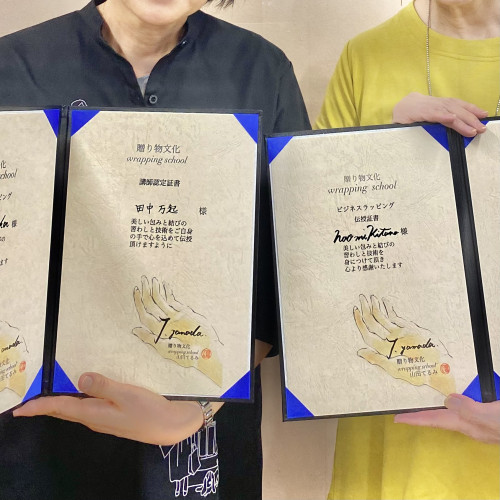 ッピング
様
贈り物文化
wrapping school
講師認定証書
田中 万起 様
美しい包みと結びの
習わしと技術をご自身
の手で心を込めて伝授
頂けますように
T. yamada.
贈り物文化
wrapping school
山田てるみ
贈り物文化
wrapping school
ビジネスラッピング
伝授証書
Naomi Kitano 様
美しい包みと結びの
習わしと技術を
身につけて頂き
心より感謝いたします
T. yamada.
贈り物文化
wrapping school
山田てるみ